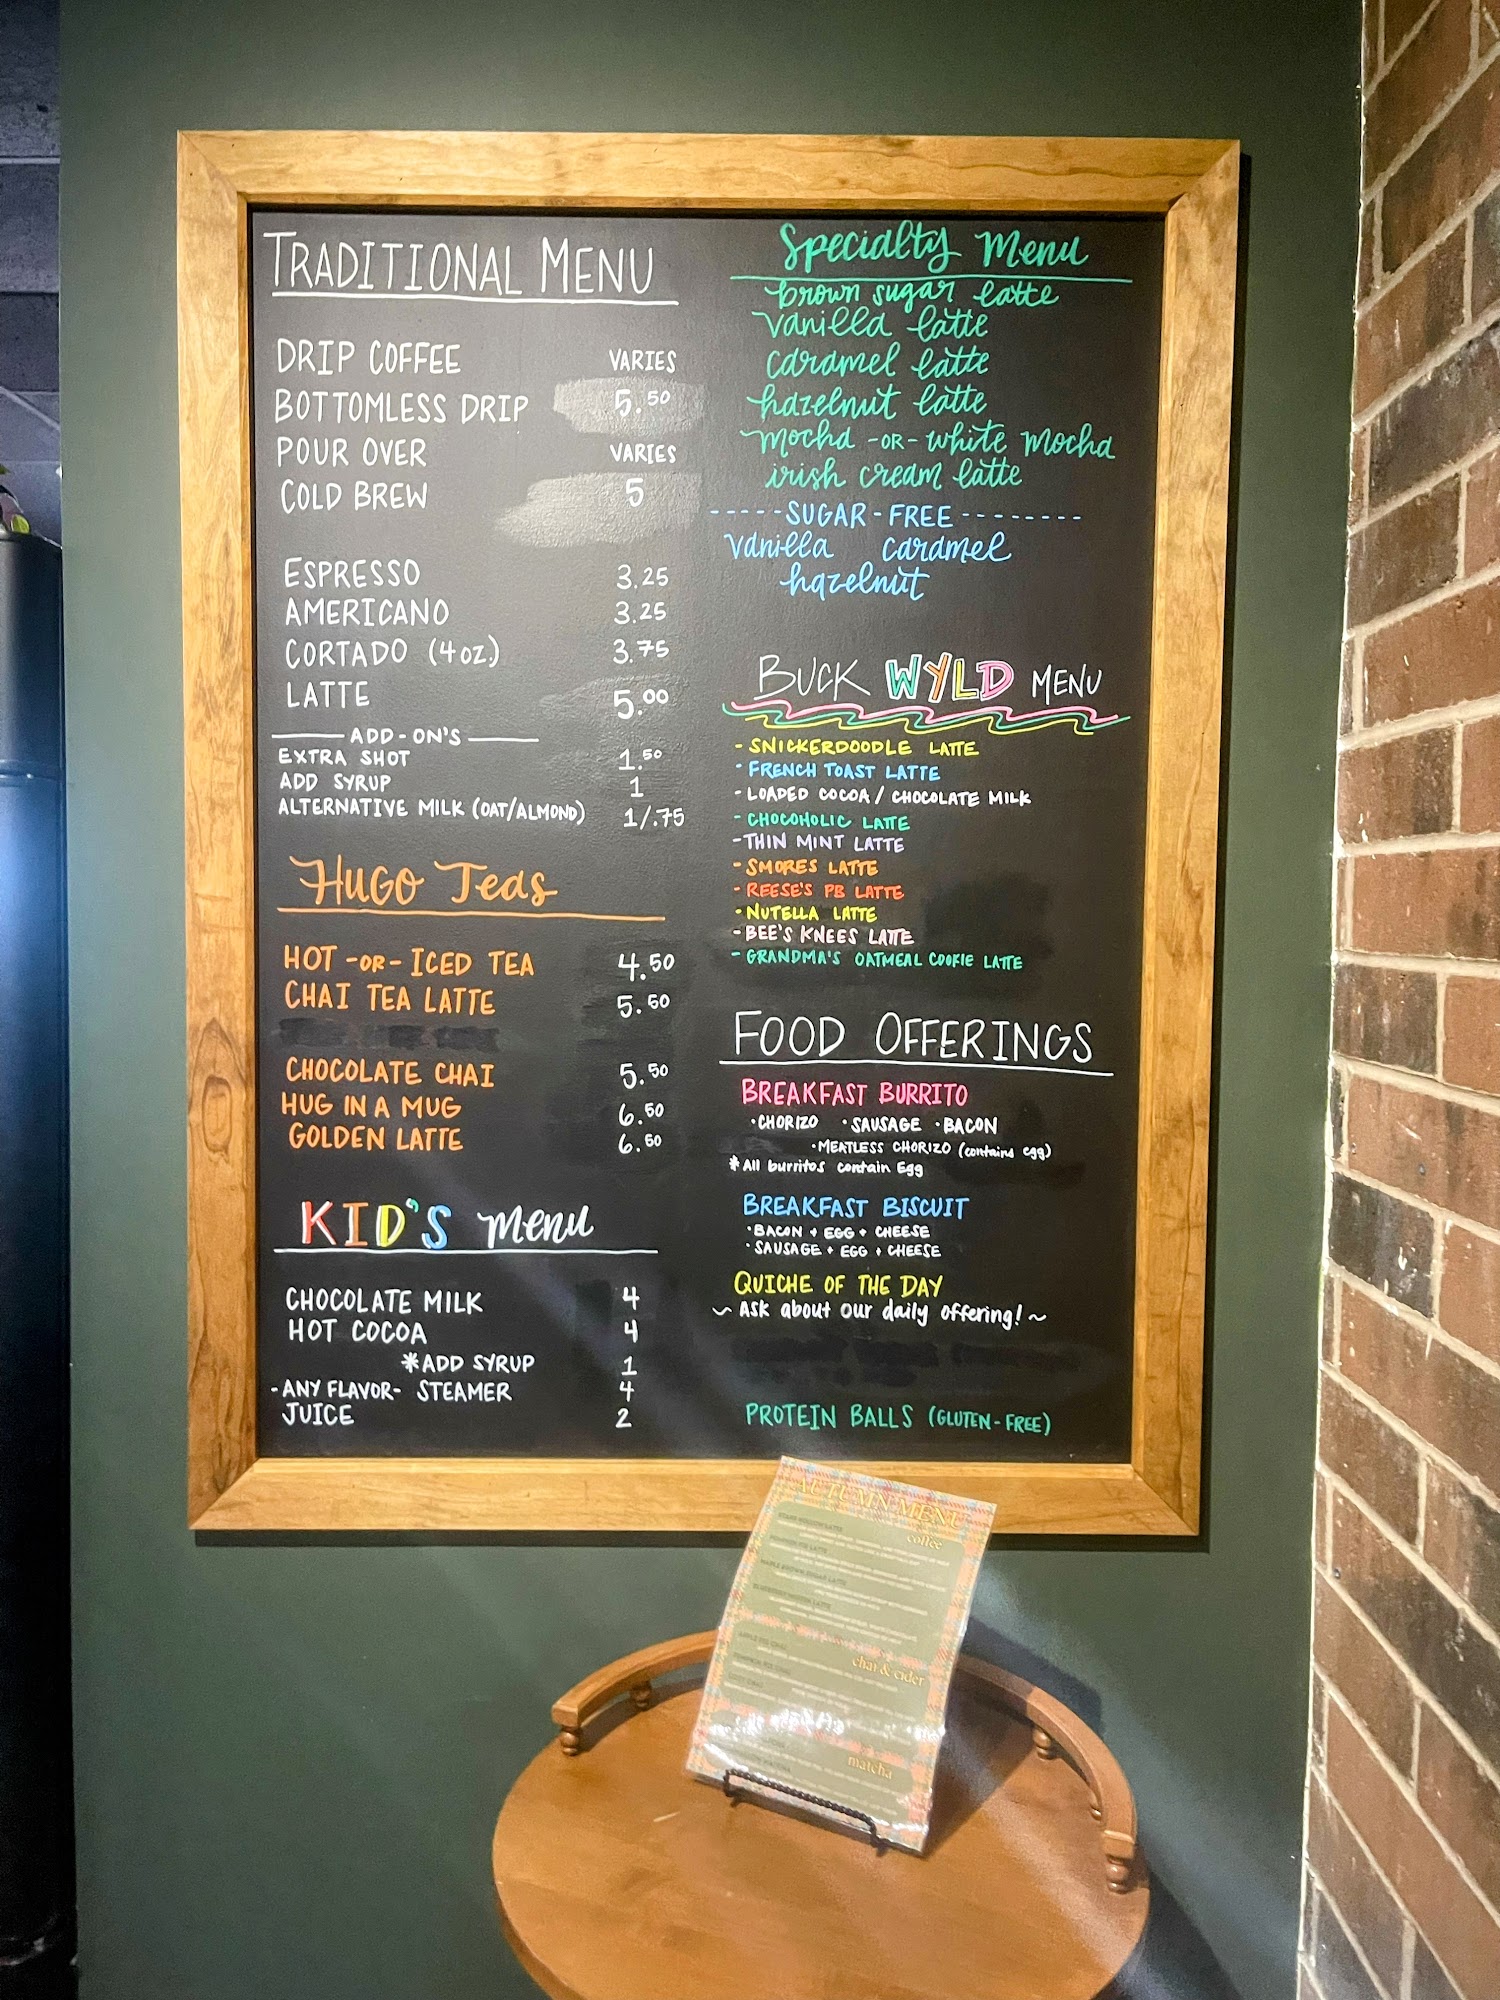 TRADITIONAL MENU
DRIP COFFEE VARIES
BOTTOMLESS DRIP 5.50
POUR OVER VARIES
COLD BREW 5
ESPRESSO 3.25
AMERICANO 3.25
CORTADO (4oz.) 3.75
LATTE 5.00
ADD-ON'S
EXTRA SHOT 1.50
ADD SYRUP 1
ALTERNATIVE MILK (OAT/ALMOND) 1/.75
HUGO Teas
HOT -OR- ICED TEA 4.50
CHAI TEA LATTE 5.50
CHOCOLATE CHAI 5.50
HUG IN A MUG 6.50
GOLDEN LATTE 6.50
KID'S Menu
CHOCOLATE MILK 4
HOT COCOA 4
*ADD SYRUP 1
-ANY FLAVOR- STEAMER 4
JUICE 2
Specialty Menu
brown sugar latte
vanilla latte
caramel latte
hazelnut latte
mocha -OR- white mocha
irish cream latte
-----SUGAR-FREE--------
vanilla caramel
hazelnut
BUCK WYLD MENU
- SNICKERDOODLE LATTE
- FRENCH TOAST LATTE
- LOADED COCOA / CHOCOLATE MILK
- CHOCOHOLIC LATTE
- THIN MINT LATTE
- SMORES LATTE
- REESE'S PB LATTE
- NUTELLA LATTE
- BEE'S KNEES LATTE
- GRANDMA'S OATMEAL COOKIE LATTE
FOOD OFFERINGS
BREAKFAST BURRITO
·CHORIZO ·SAUSAGE ·BACON
·MEATLESS CHORIZO (contains egg)
*All burritos contain Egg
BREAKFAST BISCUIT
·BACON + EGG + CHEESE
·SAUSAGE + EGG + CHEESE
QUICHE OF THE DAY
~ ASK about our daily offering! ~
PROTEIN BALLS (GLUTEN-FREE)
AUTUMN MENU
coffee
chai & cider
matcha